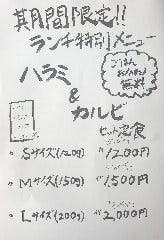 期間限定!!
ランチ特別メニュー
ごはん
おかわり
無料
ハラミ
&
カルビ
セット定食
・Sサイズ(120g) ¥1200円
・Mサイズ(150g) ¥1500円
・Lサイズ(200g) ¥2,000円